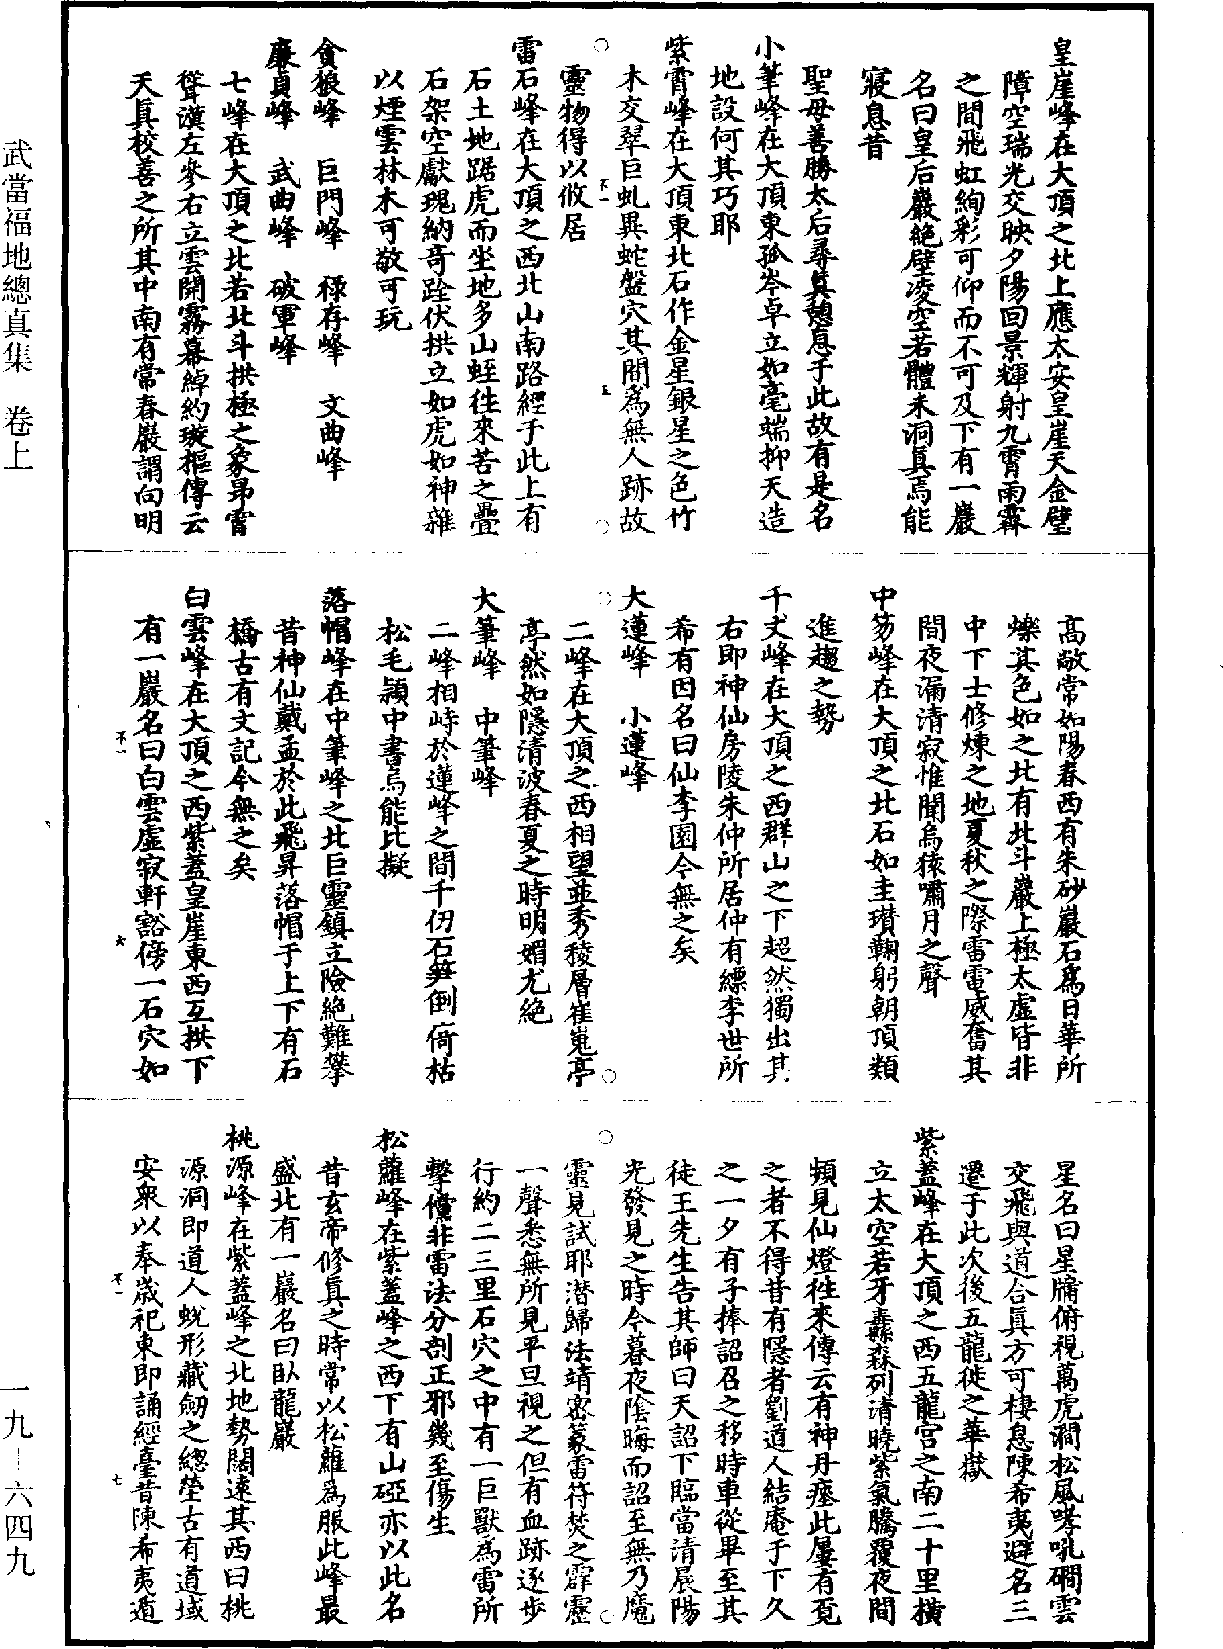 武當福地總真集　卷上
皇崖峰在大頂之北上應太安皇崖天金壁
障空瑞光交映夕陽回景輝射九霄雨霽
之間飛虹絢彩可仰而不可及下有一巖
名曰皇后巖絕壁凌空若體未洞真焉能
寢息昔
聖母善勝太后尋真憩息于此故有是名
小筆峰在大頂東孤岑卓立如毫端抑天造
地設何其巧耶
紫霄峰在大頂東北石作金星銀星之色竹
木交翠巨虬異蛇盤穴其間為無人跡故
不一
五
靈物得以攸居
雷石峰在大頂之西北山南路經于此上有
石土地踞虎而坐地多山蛭往來苦之疊
石架空獻瑰納奇跧伏拱立如虎如神雜
以煙雲林木可敬可玩
貪狼峰　巨門峰　祿存峰　文曲峰
廉貞峰　武曲峰　破軍峰
七峰在大頂之北若北斗拱極之象昴霄
聳漢左參右立雲開霧幕綽約璇樞傳云
天真校善之所其中南有常春巖謂向明
高敞常如陽春西有朱砂巖石為日華所
爍其色如之北有北斗巖上極太虛皆非
中下士修煉之地夏秋之際雷電威奮其
間夜漏清寂惟聞烏猿嘯月之聲
中笏峰在大頂之北石如圭瓚鞠躬朝頂類
進趨之勢
千丈峰在大頂之西群山之下超然獨出其
右即神仙房陵朱仲所居仲有縹李世所
希有因名曰仙李園今無之矣
大蓮峰　小蓮峰
二峰在大頂之西相望並秀稜層崔嵬亭
亭然如隱清波春夏之時明媚尤絕
大筆峰　中筆峰
二峰相峙於蓮峰之間千仞石笋倒倚枯
松毛穎中書烏能比擬
落帽峰在中筆峰之北巨靈鎮立險絕難攀
昔神仙戴孟於此飛昇落帽于上下有石
橋古有文記今無之矣
白雲峰在大頂之西紫蓋皇崖東西互拱下
有一巖名曰白雲虛寂軒豁傍一石穴如
不一
六
星名曰星牖俯視萬虎澗松風哮吼磵雲
交飛與道合真方可棲息陳希夷避名三
遷于此次後五龍徙之華嶽
紫蓋峰在大頂之西五龍宮之南二十里橫
立太空若牙纛森列清曉紫氣騰覆夜間
頻見仙燈往來傳云有神丹瘞此屢有覓
之者不得昔有隱者劉道人結庵于下久
之一夕有子捧詔召之移時車從畢至其
徒王先生告其師曰天詔下臨當清晨陽
光發見之時今暮夜陰晦而詔至無乃魔
靈見試耶潛歸法靖密篆雷符焚之霹靂
一聲悉無所見平旦視之但有血跡逐步
行約二三里石穴之中有一巨獸為雷所
擊儻非雷法分剖正邪幾至傷生
松蘿峰在紫蓋峰之西下有山磴亦以此名
昔玄帝修真之時常以松蘿為服此峰最
盛北有一巖名曰臥龍巖
桃源峰在紫蓋峰之北地勢闊遠其西曰桃
源洞即道人蛻形藏劒之總塋古有道域
安眾以奉歲祀東即誦經臺昔陳希夷遁
不一
七
一九—六四九